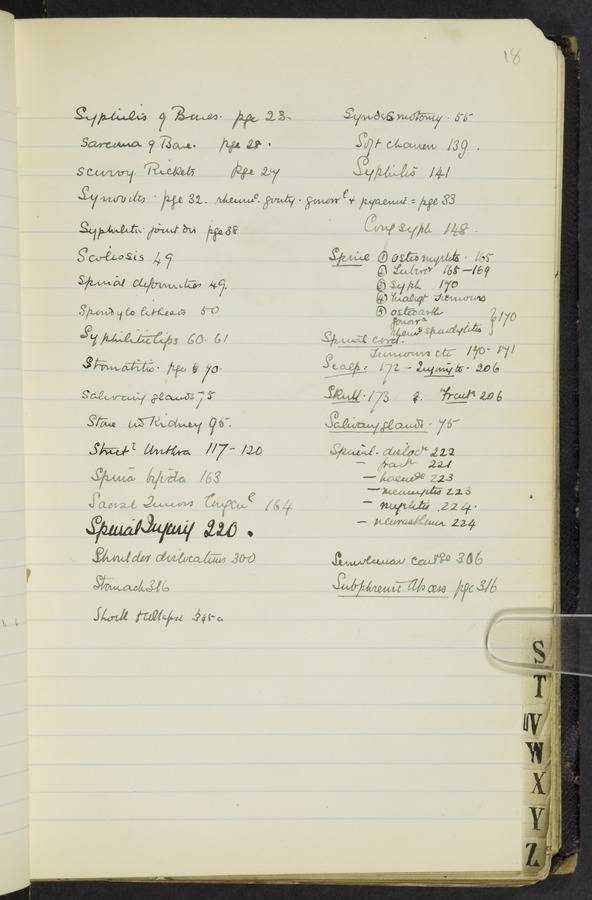 18
Syphilis of Bones. pge 23.
Sarcoma of Bone. pge 28.
Scurvy Rickets pge 24
Synovitis. pge 32. rheumc. gouty. gonorrl & pyaemic = pge 33
Syphilitic joint dis pge 38
Scoliosis 49
Spinal deformities 49.
Spondylolisthesis 50
Syphilitic lips 60. 61
Stomatitis. pge 70.
Salivary glands 75
Stone in Kidney 95.
Strictr Urethra 117-120
Spina bifida 163
Sacral Tumors Congenl 164
Spinal Injury 220.
Shoulder dislocations 300
Stomach 316
Shock & Collapse
Syndesmotomy. 55
Soft chancre 139.
Syphilis 141
Cong syph 148.
Spine ① osteomyelitis. 165
② Tubercr 165-169
③ Syph 170
④ malign Tumours
⑤ osteoarth
gonorra
rheum spondylitis } 170
Spinal cord.
Tumours etc 170-171
Scalp: 172 - Injury to. 206
Skull. 173 Fractr 206
Salivary glands. 75
Spinal. dislocn 222
- fractr 221
- haemge 223
- meningitis 223
- myelitis 224.
- neurasthenia 224
Semilunar cartge 306
Subphrenic Abscess pge 316
S
T
UV
W
X
Y
Z